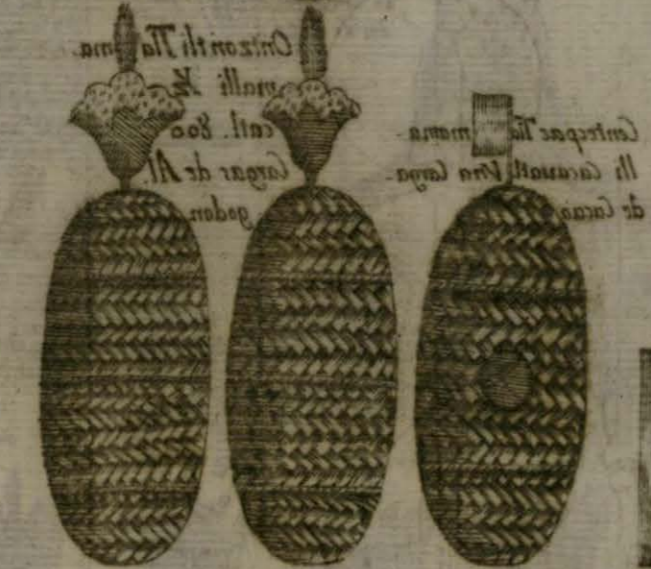 Ontzontli Tla ma.
malli Yz
catl. 800
Cargas de Al.
godon.
Centecpac Tla mama-
lli Cacauatl Vna Carga-
de Cacao